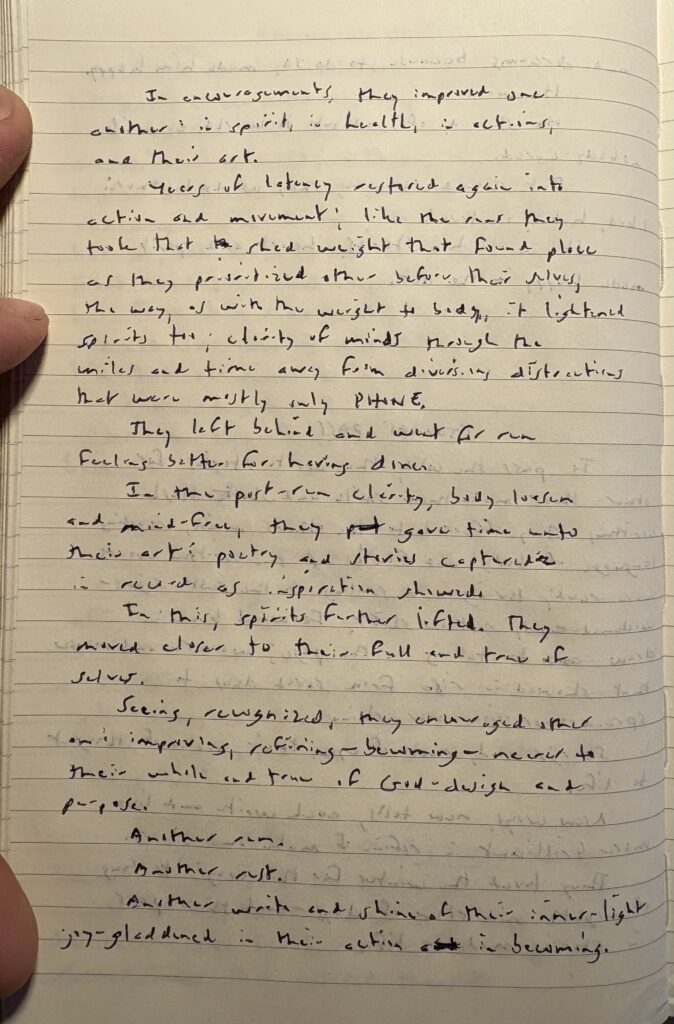 In encouragements, they improved one
another: in spirit, in health, in actions,
and their art.
Years of latency restored again into
action and movement; like the runs they
took that shed weight that found place
as they prioritized other before their selves,
the way, as with the weight to body, it lightened
spirits too; clarity of minds through the
miles and time away from diversing distractions
that were mostly only PHONE.
They left behind and went for run
feeling better for having done.
In the post-run clarity, body loosen
and mind-free, they gave time unto
their art: poetry and stories captured
in record as inspiration showed.
In this, spirits further lifted. They
moved closer to their full and true of
selves.
Seeing, recognized, they encouraged other
on: improving, refining - becoming - nearer to
their whole and true of God-design and
purpose.
Another run.
Another rest.
Another write and shine of their inner-light
joy-gladdened in their action in becoming.